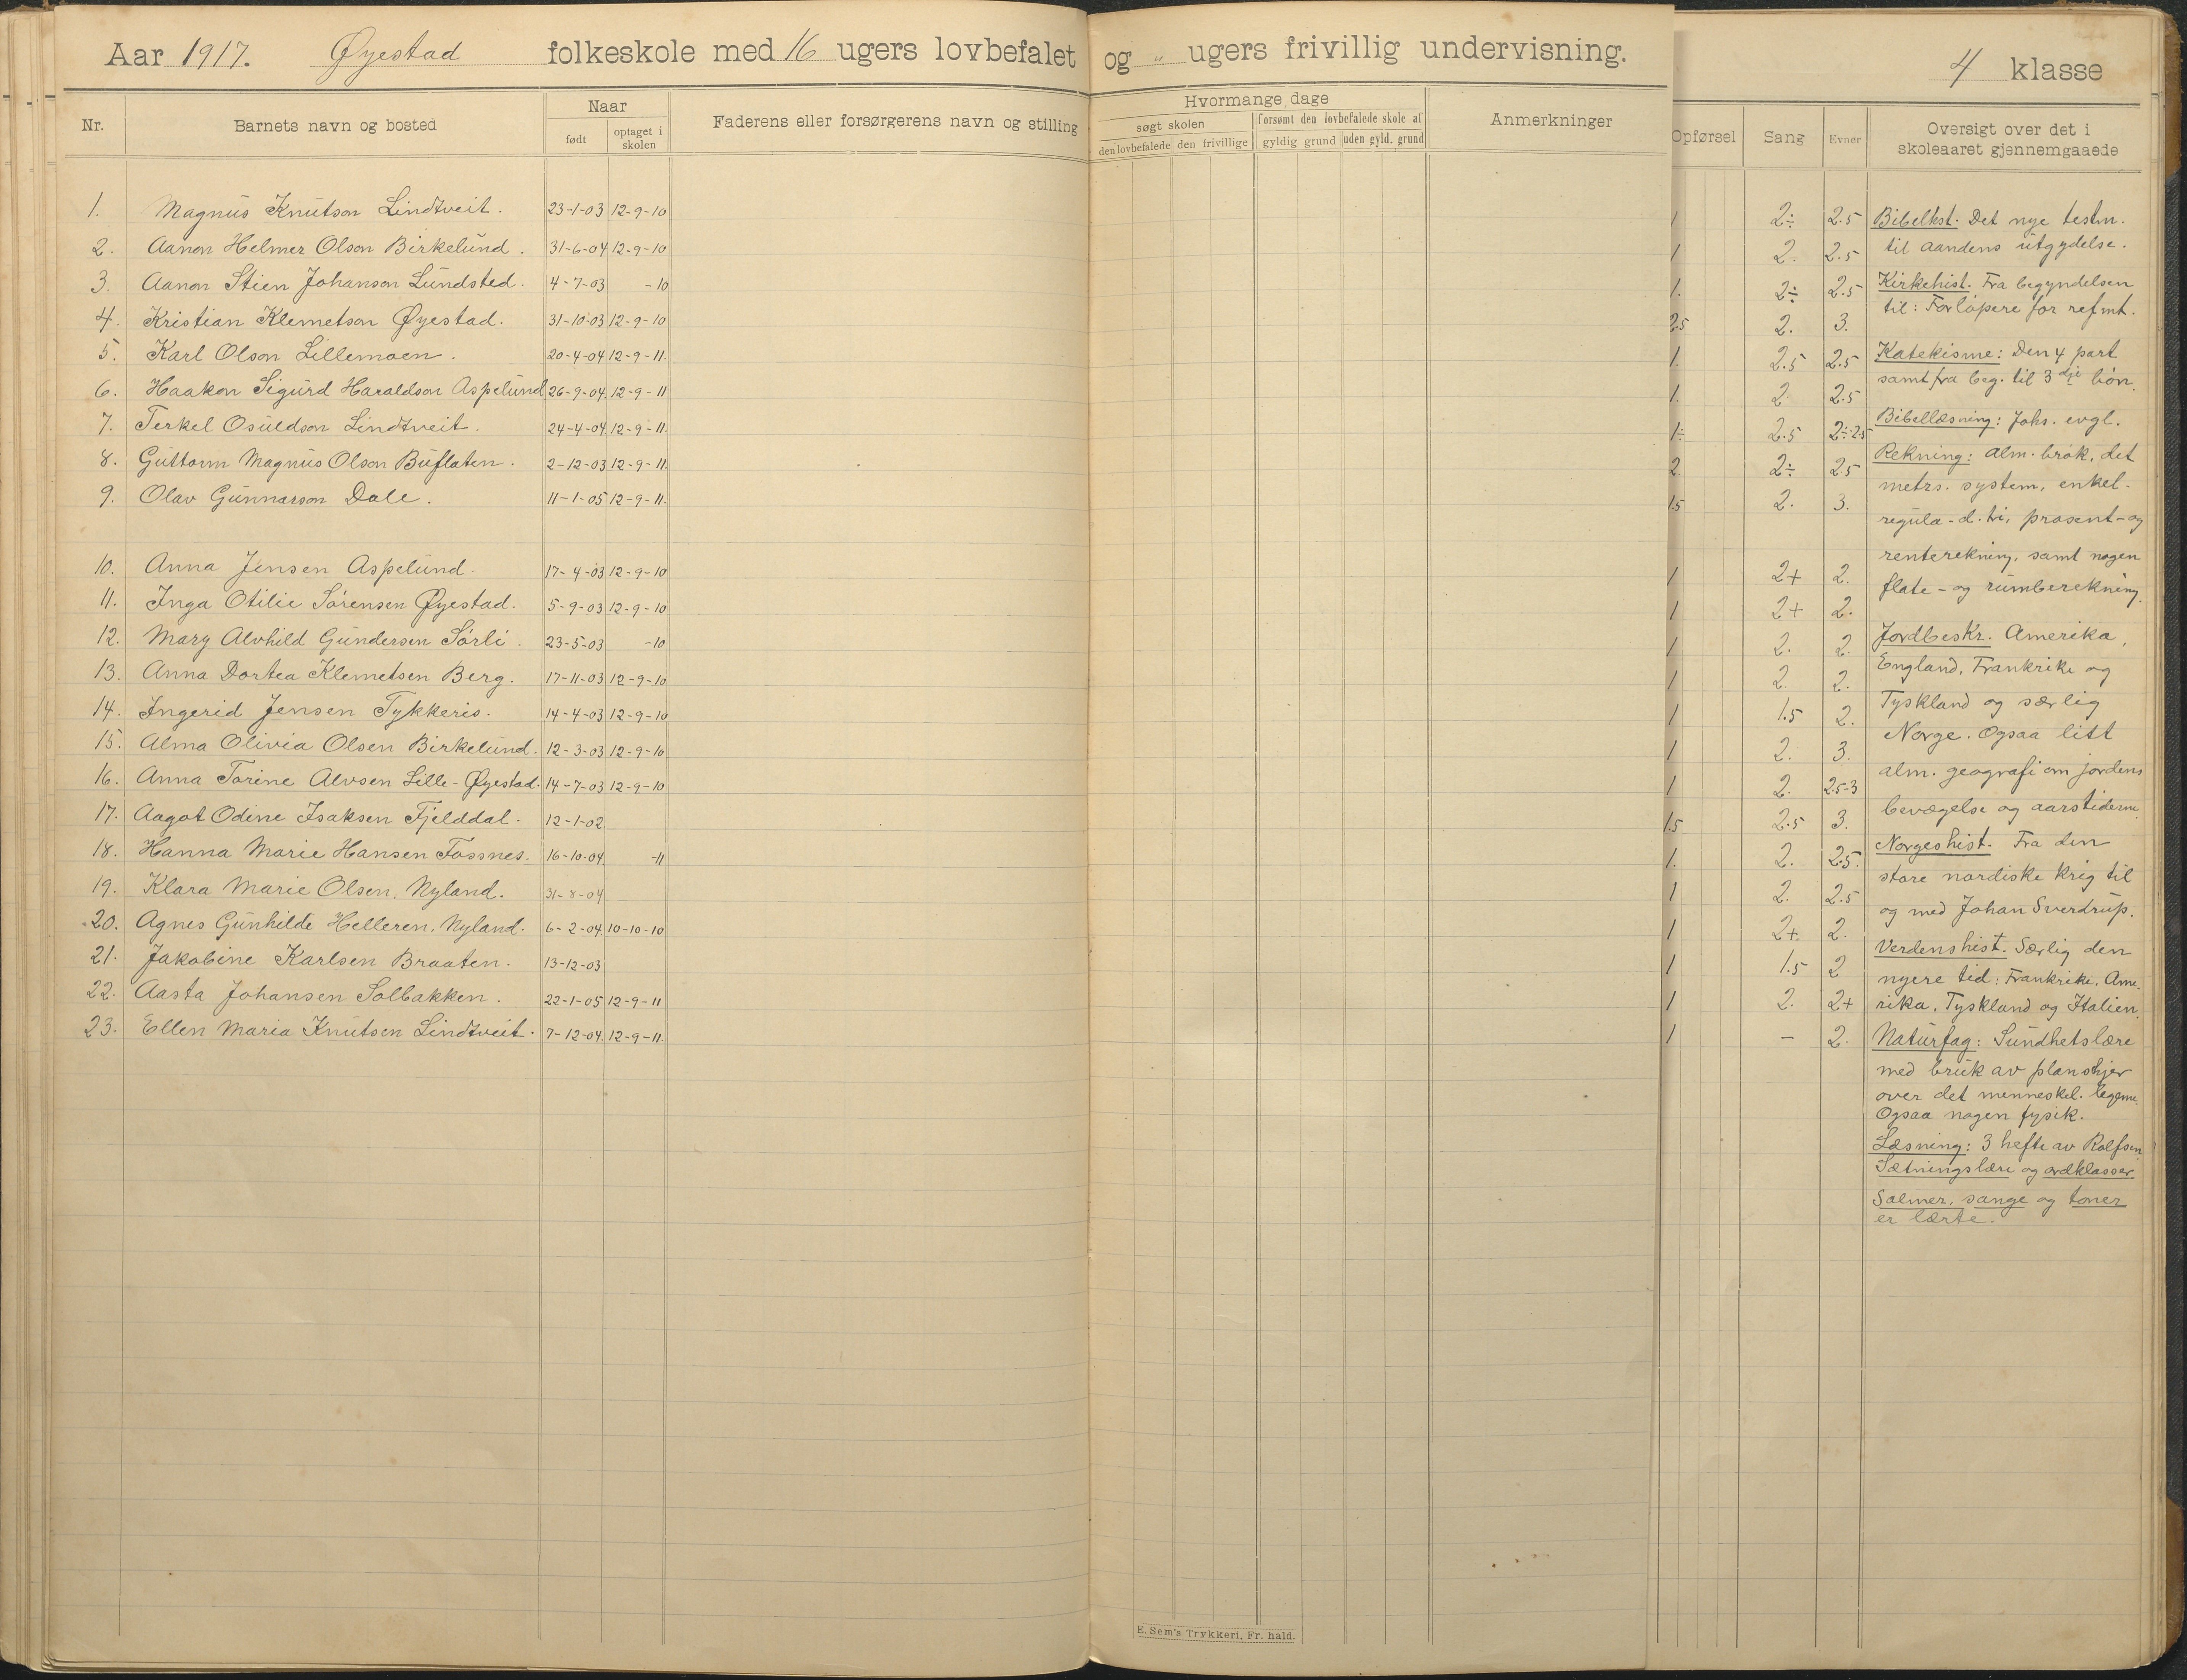 Aar 1917. Øyestad folkeskole med 16 ugers lovbefalet og „ ugers frivillig undervisning.
4 klasse
Nr. Barnets navn og bosted Naar født optaget i skolen Faderens eller forsørgerens navn og stilling
Hvormange dage søgt skolen den lovbefalede den frivillige forsømt den lovbefalede skole af gyldig grund uden gyld. grund Anmerkninger
Opførsel Sang Evner Oversigt over det i skoleaaret gjennemgaaede
1. Magnus Knutson Lindtveit. 23-1-03 12-9-10 1 2÷ 2.5
2. Aanon Helmer Olson Birkelund. 31-6-04 12-9-10 1 2. 2.5
3. Aanon Stien Johanson Lundsted. 4-7-03 -10 1. 2÷ 2.5
4. Kristian Klemetson Øyestad. 31-10-03 12-9-10 2.5 2. 3.
5. Karl Olson Lillemoen. 20-4-04 12-9-11. 1. 2.5 2.5
6. Haakon Sigurd Haraldson Aspelund 26-9-04. 12-9-11 1. 2 2.5
7. Terkel Osuldson Lindtveit. 24-4-04 12-9-11. 1÷ 2.5 2÷-2.5
8. Guttorm Magnus Olson Buflaten. 2-12-03 12-9-11. 2. 2÷ 2.5
9. Olav Gunnarson Dale. 11-1-05 12-9-11. 1.5 2. 3.
10. Anna Jensen Aspelund. 17-4-03 12-9-10 1 2+ 2.
11. Inga Otilie Sørensen Øyestad. 5-9-03 12-9-10 1 2+ 2.
12. Mary Alvhild Gundersen Sørli. 23-5-03 -10 1 2. 2.
13. Anna Dortea Klemetsen Berg. 17-11-03 12-9-10 1 2. 2.
14. Ingerid Jensen Tykkeris. 14-4-03 12-9-10 1 1.5 2.
15. Alma Olivia Olsen Birkelund. 12-3-03 12-9-10 1 2. 3.
16. Anna Torine Alvsen Lille-Øyestad. 14-7-03 12-9-10 1 2. 2.5-3
17. Aagot Odine Isaksen Fjelddal. 12-1-02 1.5 2.5 3.
18. Hanna Marie Hansen Fossnes. 16-10-04. -11 1. 2. 2.5.
19. Klara Marie Olsen, Nyland. 31-8-04 1 2. 2.5
20. Agnes Gunhilde Helleren, Nyland. 6-2-04 10-10-10 1 2+. 2.
21. Jakobine Karlsen Braaten. 13-12-03 1 1.5 2
22. Aasta Johansen Solbakken. 22-1-05 12-9-11 1 2. 2+
23. Ellen Maria Knutsen Lindtveit. 7-12-04. 12-9-11. 1 – 2.
Bibelhst: Det nye testm.
til aandens utgydelse.
Kirkehist. Fra begyndelsen
til: Forløpere for refmt.
Katekisme: Den 4 part
samt fra beg. til 3 dje bøn.
Bibellæsning: Johs. evgl.
Rekning: Alm. brøk, det
metrs. system, enkel-
regula-d.tri, prosent-og
renterekning, samt nogen
flate-og rumberekning.
Jordbeskr. Amerika,
England, Frankrike og
Tyskland og særlig
Norge. Ogsaa litt
alm. geografi om jordens
bevægelse og aarstiderne.
Norgeshist. Fra den
store nordiske krig til
og med Johan Sverdrup.
Verdenshist. Særlig den
nyere tid: Frankrike, Ame-
rika, Tyskland og Italien.
Naturfag: Sundhetslære
med bruk av planshjer
over det menneskel. legeme.
Ogsaa nogen fysik.
Læsning: 3 hefte av Rolfsen.
Sætningslære og ordklasser
Salmer, sange og toner
er lærte.
E. Sem's Trykkeri, Fr. hald.